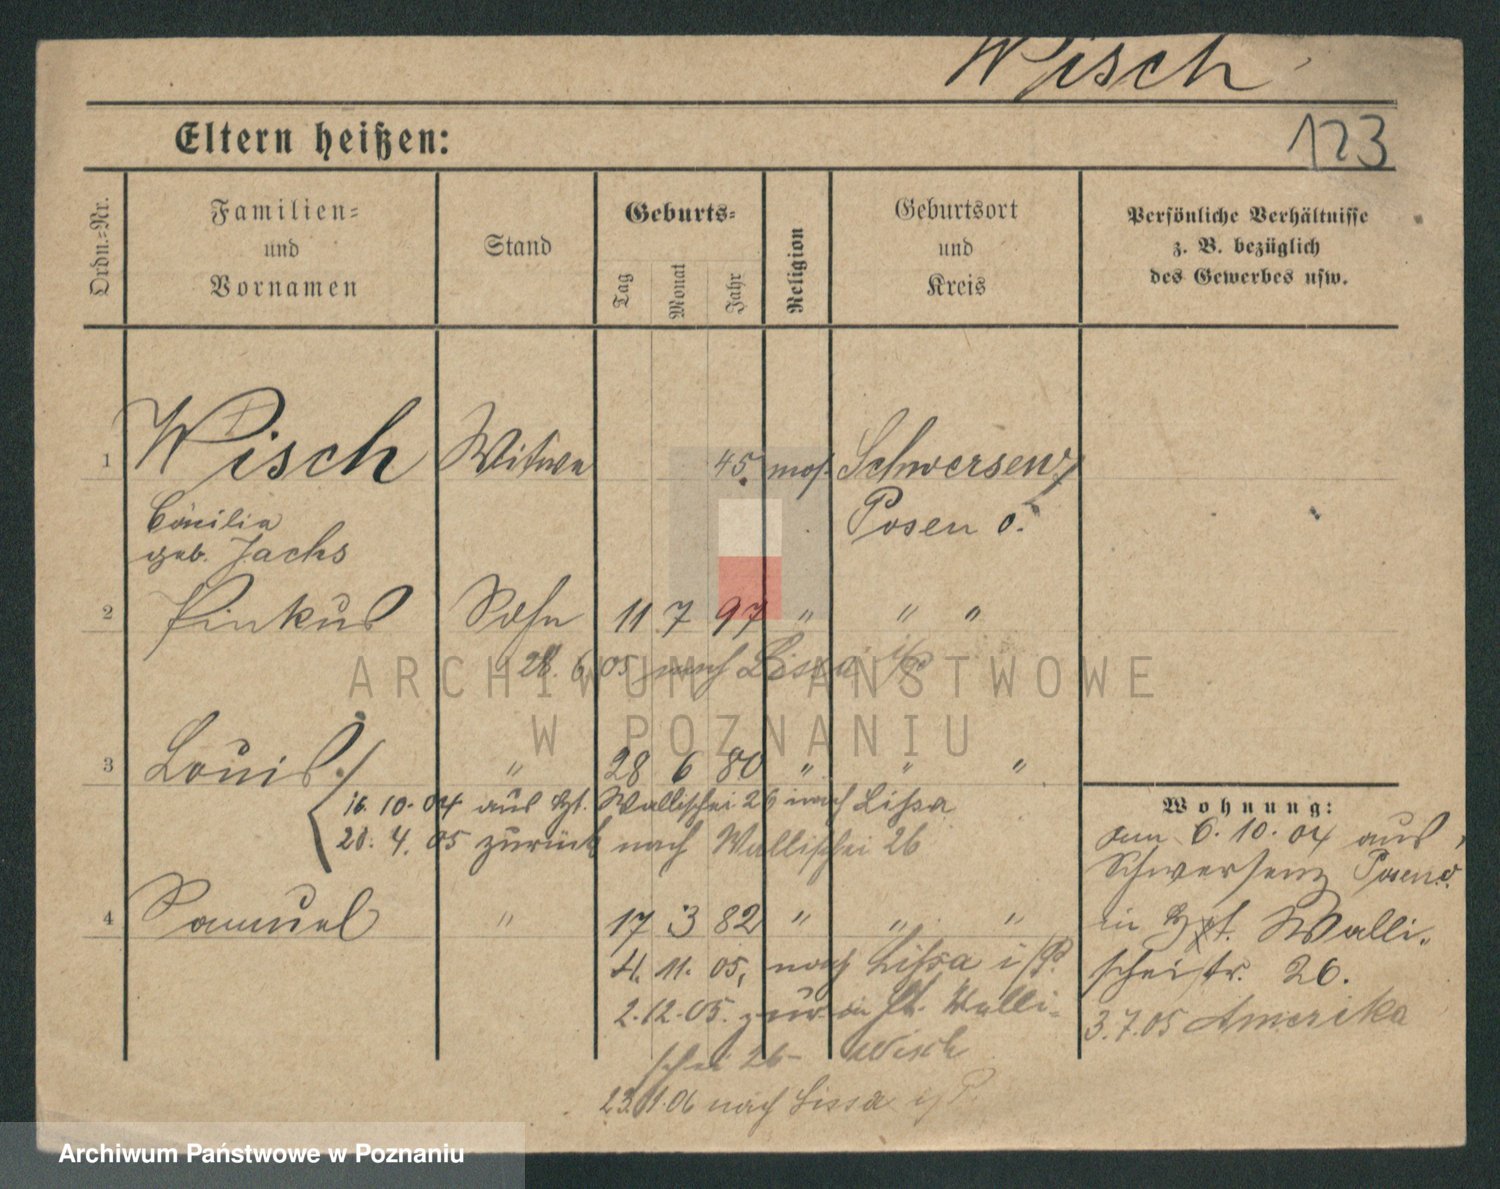 Wisch
Eltern heißen:
123
Ordn.-Nr.
Familien-
und
Vornamen
Stand
Geburts-
Tag
Monat
Jahr
Religion
Geburtsort
und
Kreis
Persönliche Verhältnisse
z. B. bezüglich
des Gewerbes usw.
1 Wisch Witwe 45. mos. Schwersenz
Cäcilia Posen O.
geb. Jachs
2 Pinkus Sohn 11 7 97 " " "
28. 6. 05 nach Lissa i/P
3 Louis " 28 6 80 " " "
16. 10. 04 aus Wallischei 26 nach Lissa
28. 4. 05 zurück nach Wallischei 26
4 Samuel " 17 3 82 " " "
4. 11. 05, nach Lissa i/P.
2. 12. 05. zur. in Walli-
schei 26 Wisch
23. 1. 06 nach Lissa i/P.
Wohnung:
am 6. 10. 04 aus
Schwersenz Posen O.
in Walli-
scheistr. 26.
3. 7. 05 Amerika
ARCHIWUM PAŃSTWOWE
W POZNANIU
Archiwum Państwowe w Poznaniu